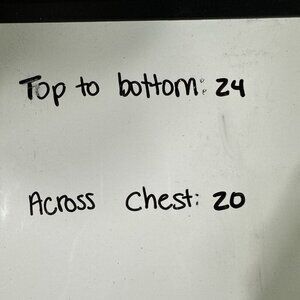 Top to bottom: 24
Across Chest: 20